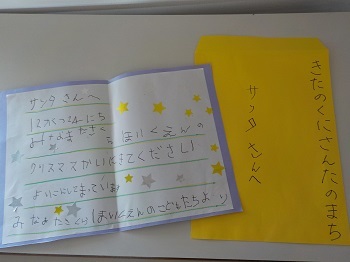 サンタさんへ
12がつ24にち
ほいくえんの
クリスマスかいにきてください
よいこにしてまっています
ほいくえんのこどもたちより
きたのくにさんたのまち
サンタさんへ